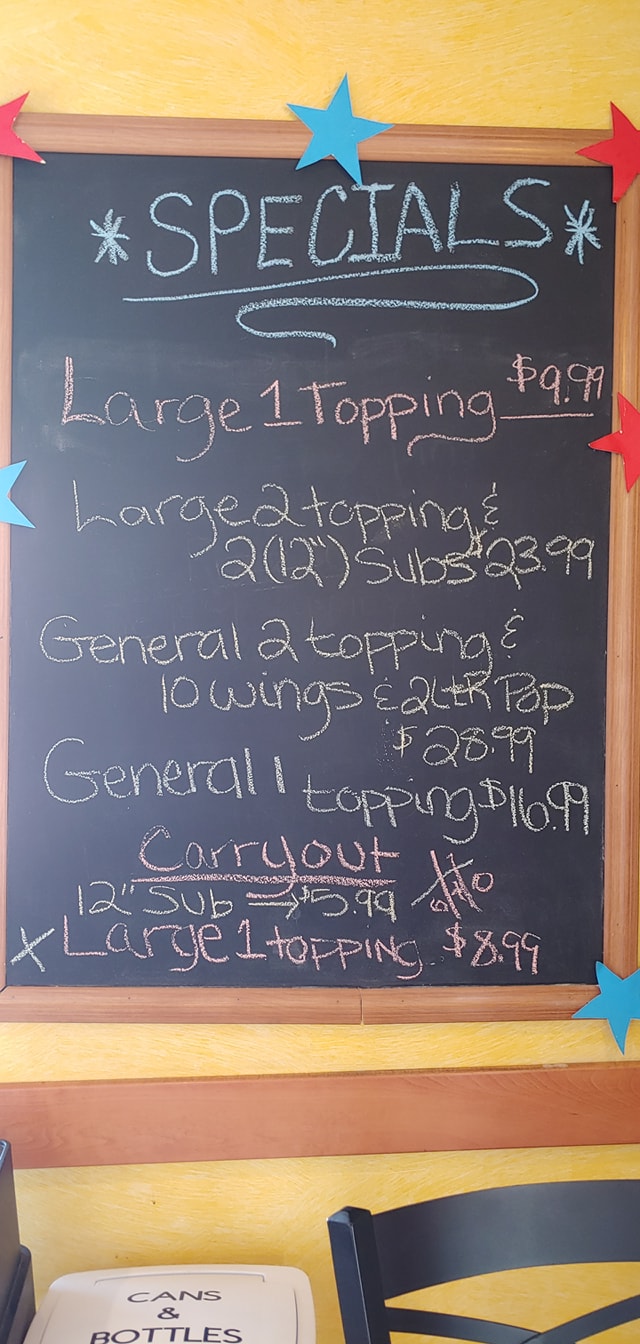 *SPECIALS*
Large 1 Topping $9.99
Large 2 topping &
2(12") Subs $23.99
General 2 topping &
10 wings & 2LtR Pop
$28.99
General 1 topping $16.99
Carryout
12" Sub → $5.99
X Large 1 topping $8.99
CANS
&
BOTTLES